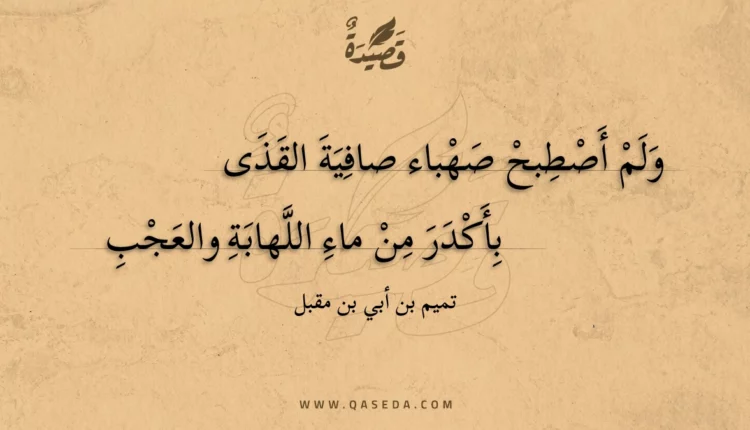 قَصِيدَةٌ
وَلَمْ أَصْطِبحْ صَهْباء صافِيَةَ القَذَى
بِأَكْدَرَ مِنْ ماءِ اللَّهابَةِ والعَجْبِ
تميم بن أبي بن مقبل
WWW.QASEDA.COM